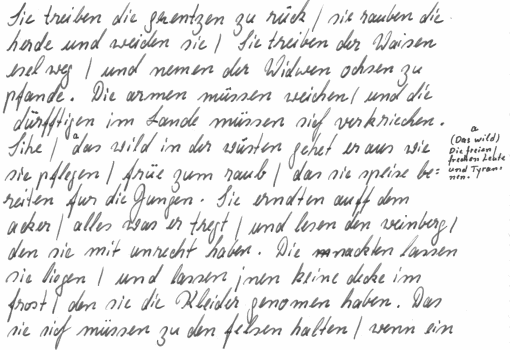 Sie treiben die grentzen zu rück / sie rauben die
herde und weiden sie / Sie treiben der Waisen
esel weg / und nemen der Widwen ochsen zu
pfande. Die armen müssen weichen / und die
dürfftigen im Lande müssen sich verkriechen.
Sihe / a das wild in der wüsten gehet er aus wie
sie pflegen / früe zum raub / das sie speise be=
reiten fur die Jungen. Sie erndten auff dem
acker / alles was er tregt / und lesen den weinberg /
den sie mit unrecht haben. Die nackten lassen
sie liegen / und lassen jnen keine decke im
frost / den sie die Kleider genomen haben. Das
sie sich müssen zu den felsen halten / wenn ein
a
(Das wild)
Die freien /
frechen Leute
und Tyran=
nen.